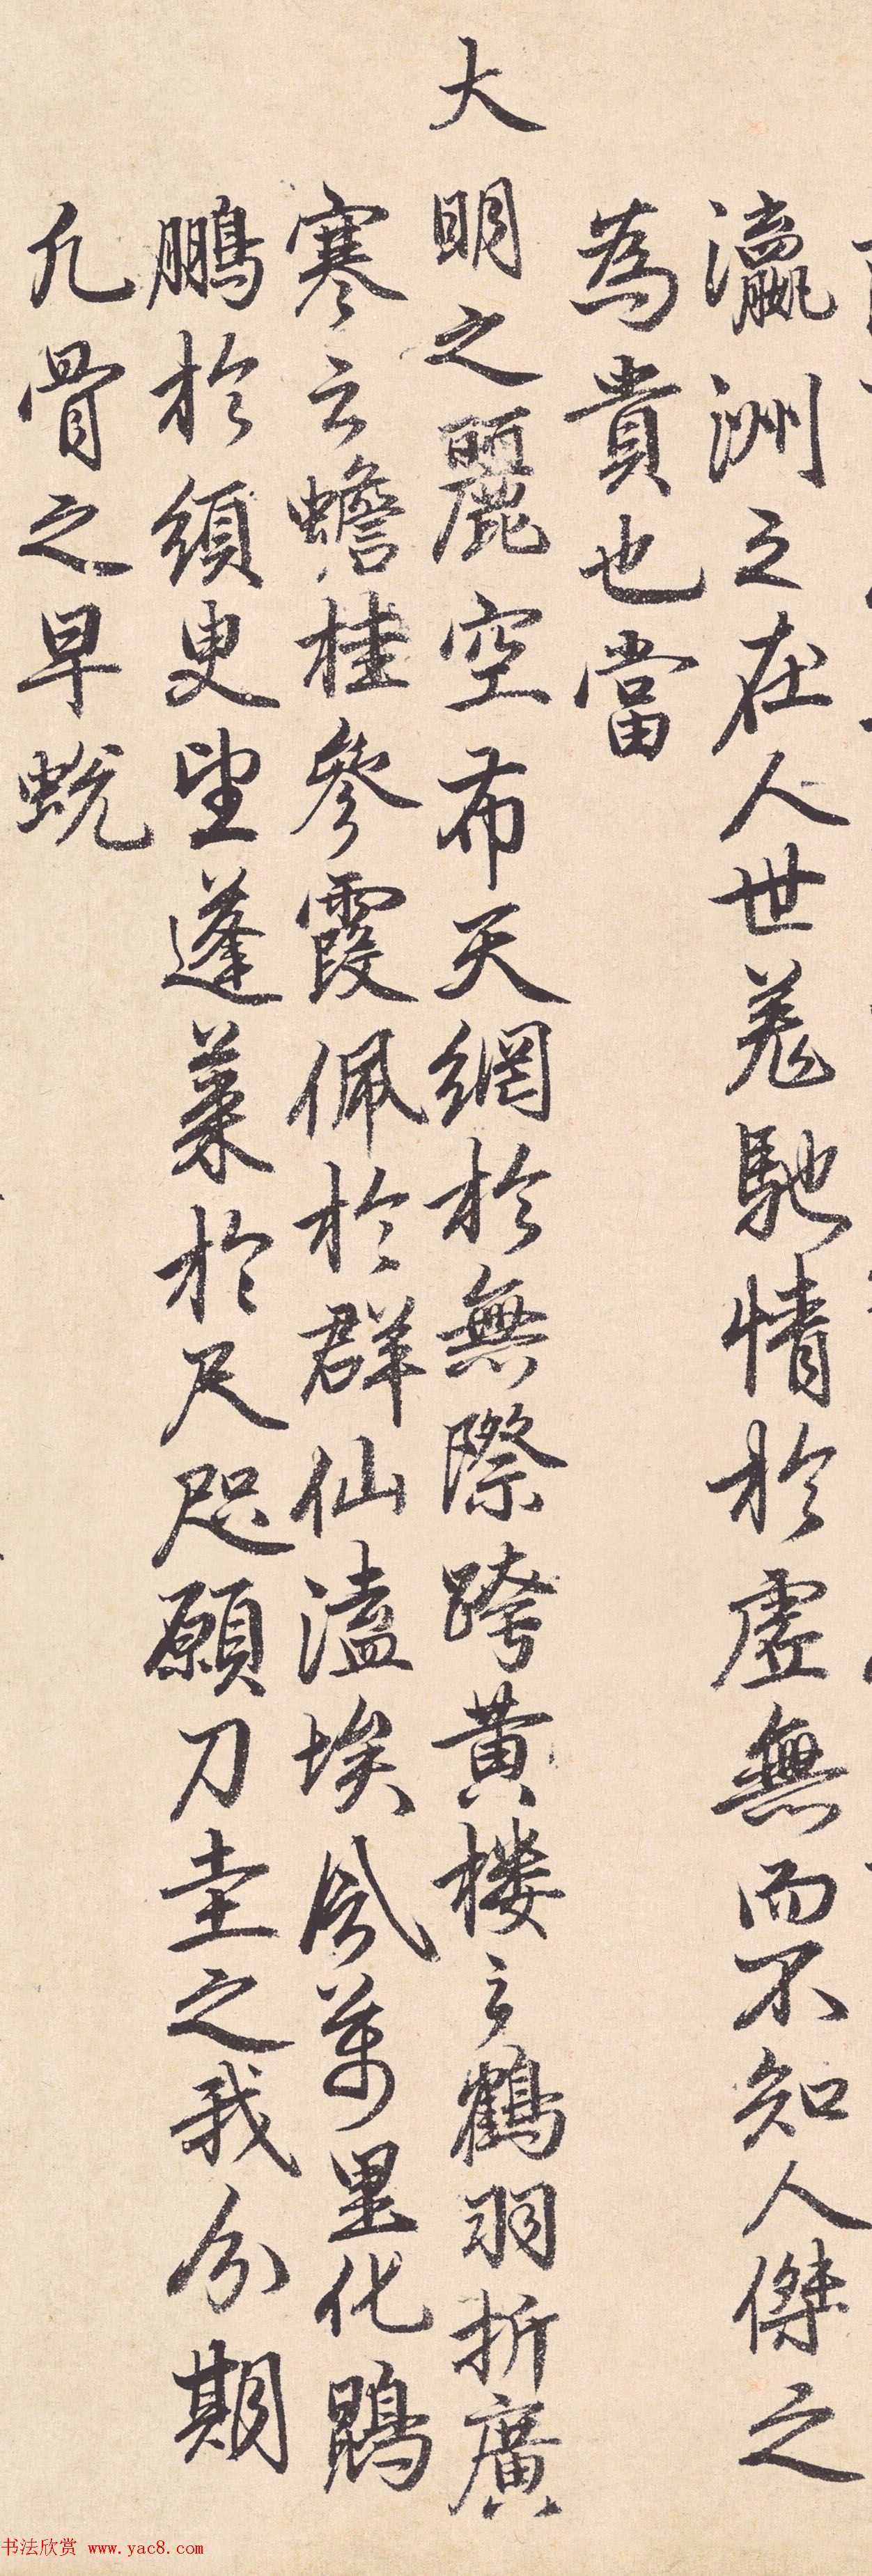 瀛洲之在人世羌馳情於虛無而不知人傑之
為貴也當
大明之麗空布天網於無際跨黃楼之鶴羽折廣
寒之蟾桂參霞佩於群仙溘埃風萬里化鵾
鵬於須臾望蓬萊於尺咫願刀圭之我分期
凡骨之早蛻
书法欣赏 www.yac8.com